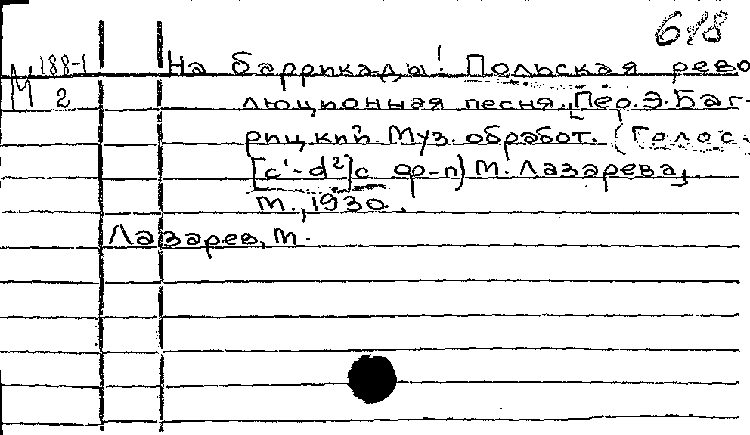 618
М 188-1
2
На баррикады! Польская рево
люционная песня. [Пер. Э. Баг-
рицкий. Муз. обработ. (Голос.
[c¹-d²] с ф-п) М. Лазарева,
М., 1930.
Лазарев, М.